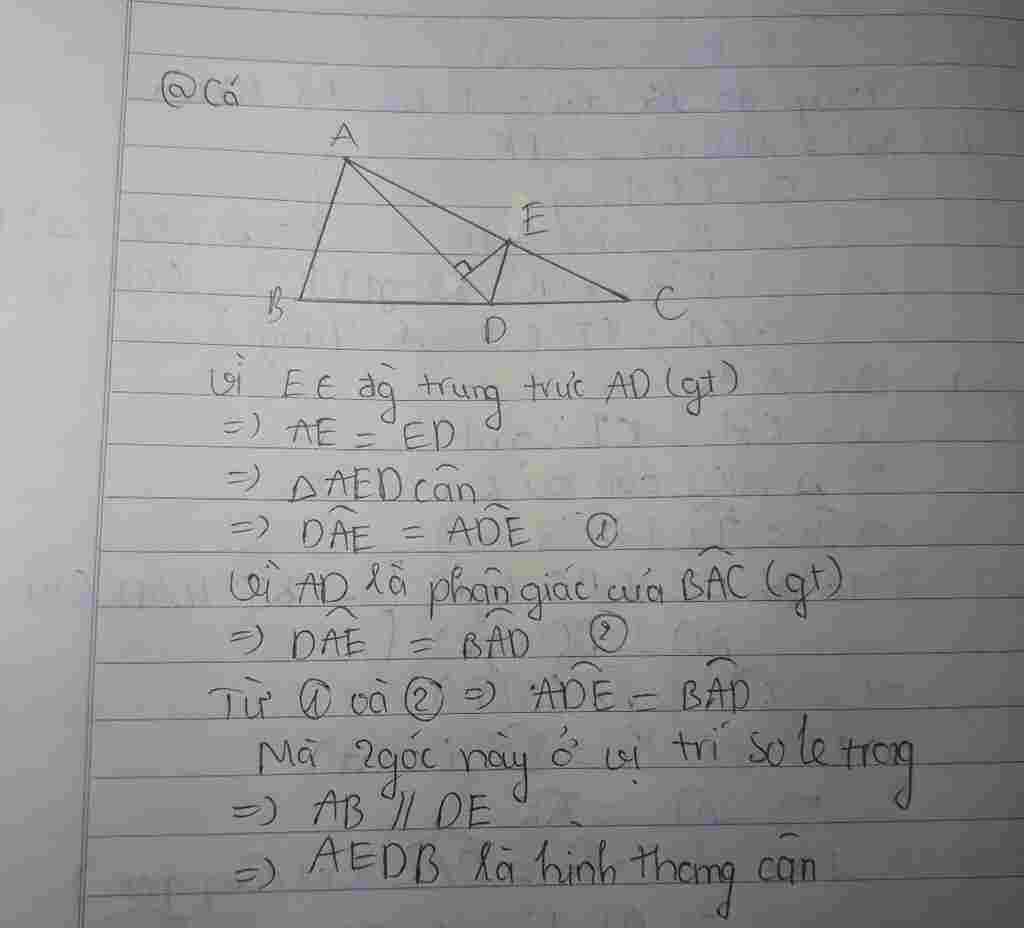 @Cá
A
E
B
D
C
Vì E ∈ đg trung trực AD (gt)
=) AE = ED
=) Δ AED cân
=) DÂE = AD̂E ①
Vì AD là phân giác của BÂC (gt)
=) DÂE = BÂD ②
Từ ① và ② =) AD̂E = BÂD
Mà 2 góc này ở vị trí so le trong
=) AB // DE
=) AEDB là hình thang cân